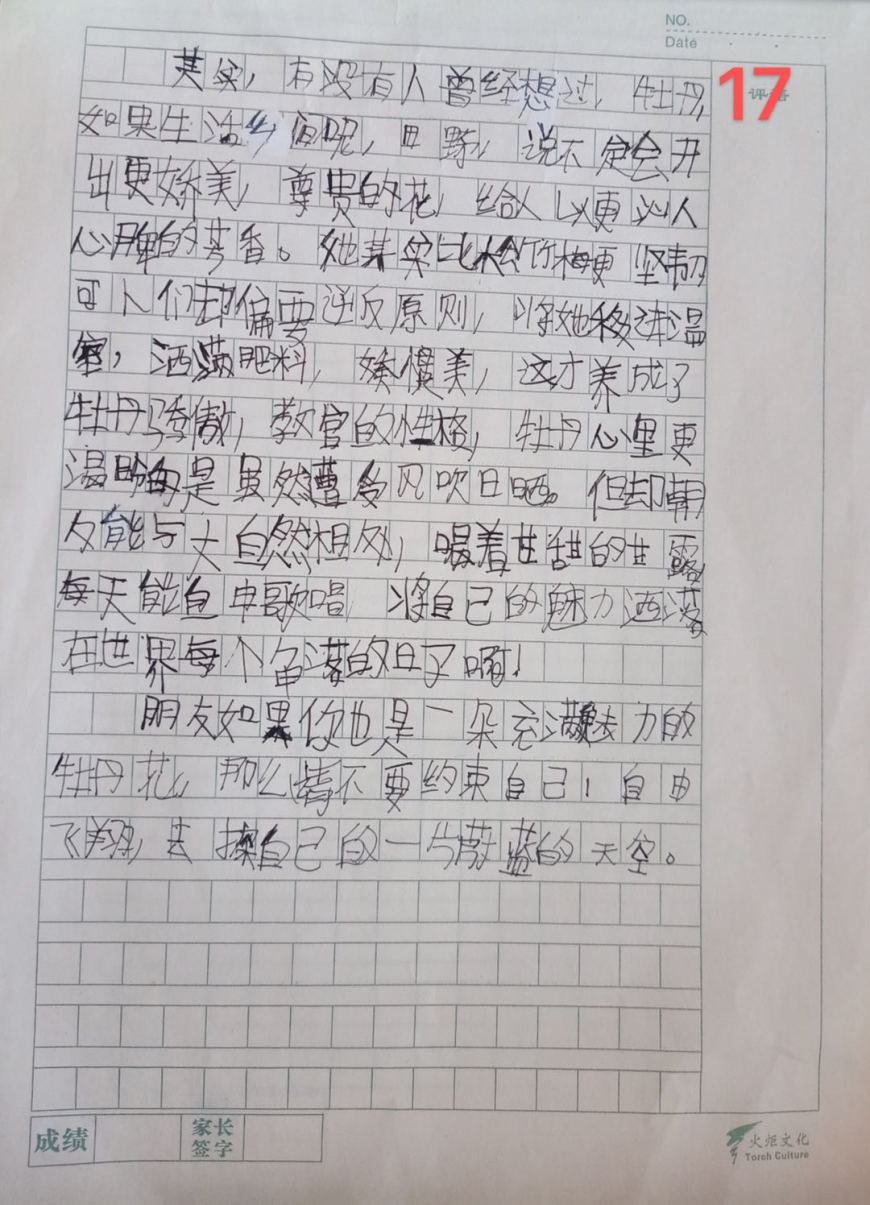 NO.
Date
17
评语
其实，有没有人曾经想过，牡丹，
如果生活乡间呢，田野，说不定会开
出更娇美，尊贵的花，给人以更沁人
心脾的芳香。她其实比松竹梅更坚韧
可人们却偏要逆反原则，将她移进温
室，洒满肥料，娇惯美，这才养成了
牡丹骄傲，的性格，牡丹心里更
渴盼每是虽然遭受风吹日晒。但却朝
夕能与大自然相处，喝着甘甜的甘露
每天能自由歌唱 将自己的魅力洒落
在世界每个角落的日子啊！
朋友如果你也是一朵充满魅力的
牡丹花，那么请不要约束自己！自由
飞翔，去 自己的一片蔚蓝的天空。
成绩
家长
签字
火炬文化
Torch Culture